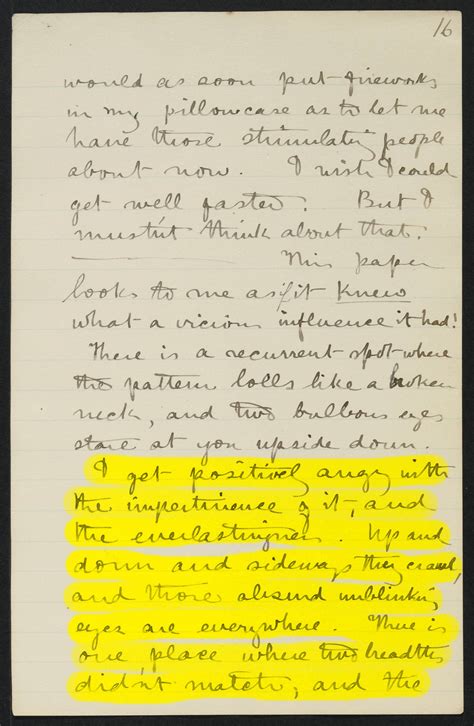 16
would as soon put fireworks
in my pillowcase as to let me
have those stimulating people
about now. I wish I could
get well faster. But I
mustn't think about that.
This paper
looks to me as if it knew
what a vicious influence it had!
There is a recurrent spot where
the pattern lolls like a broken
neck, and two bulbous eyes
stare at you upside down.
I get positively angry with
the impertinence of it, and
the everlastingness. Up and
down and sideways they crawl,
and those absurd unblinking
eyes are everywhere. There is
one place where two breadths
didn't match, and the